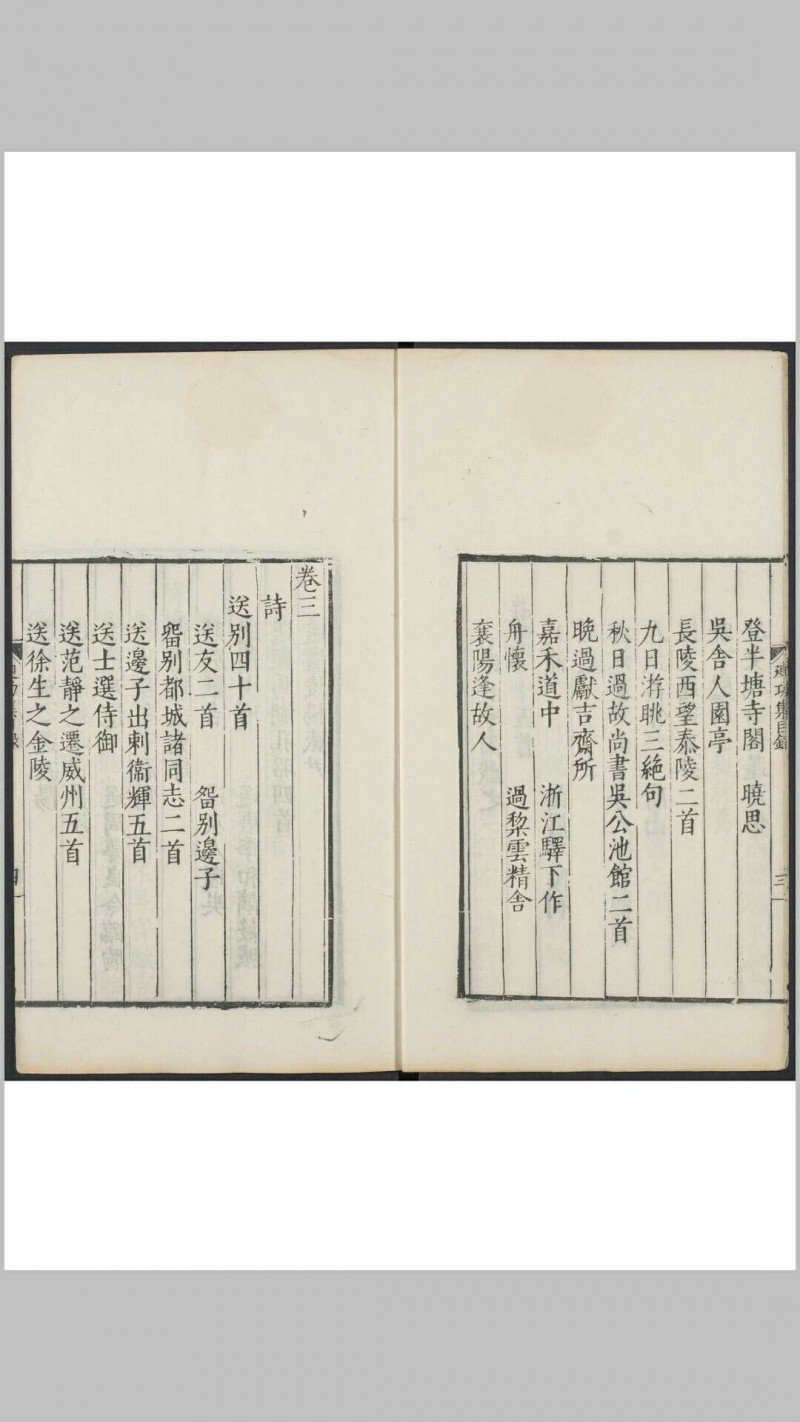 登半塘寺閣　曉思
吳舍人園亭
長陵西望泰陵二首
九日游眺三絶句
秋日過故尚書吳公池館二首
晚過獻吉齋所
嘉禾道中　浙江驛下作
舟懷　過棃雲精舍
襄陽逢故人
三
卷三
詩
送別四十首
送友二首　畱別邊子
畱別都城諸同志二首
送邊子出刺衞輝五首
送士選侍御
送范靜之遷威州五首
送徐生之金陵